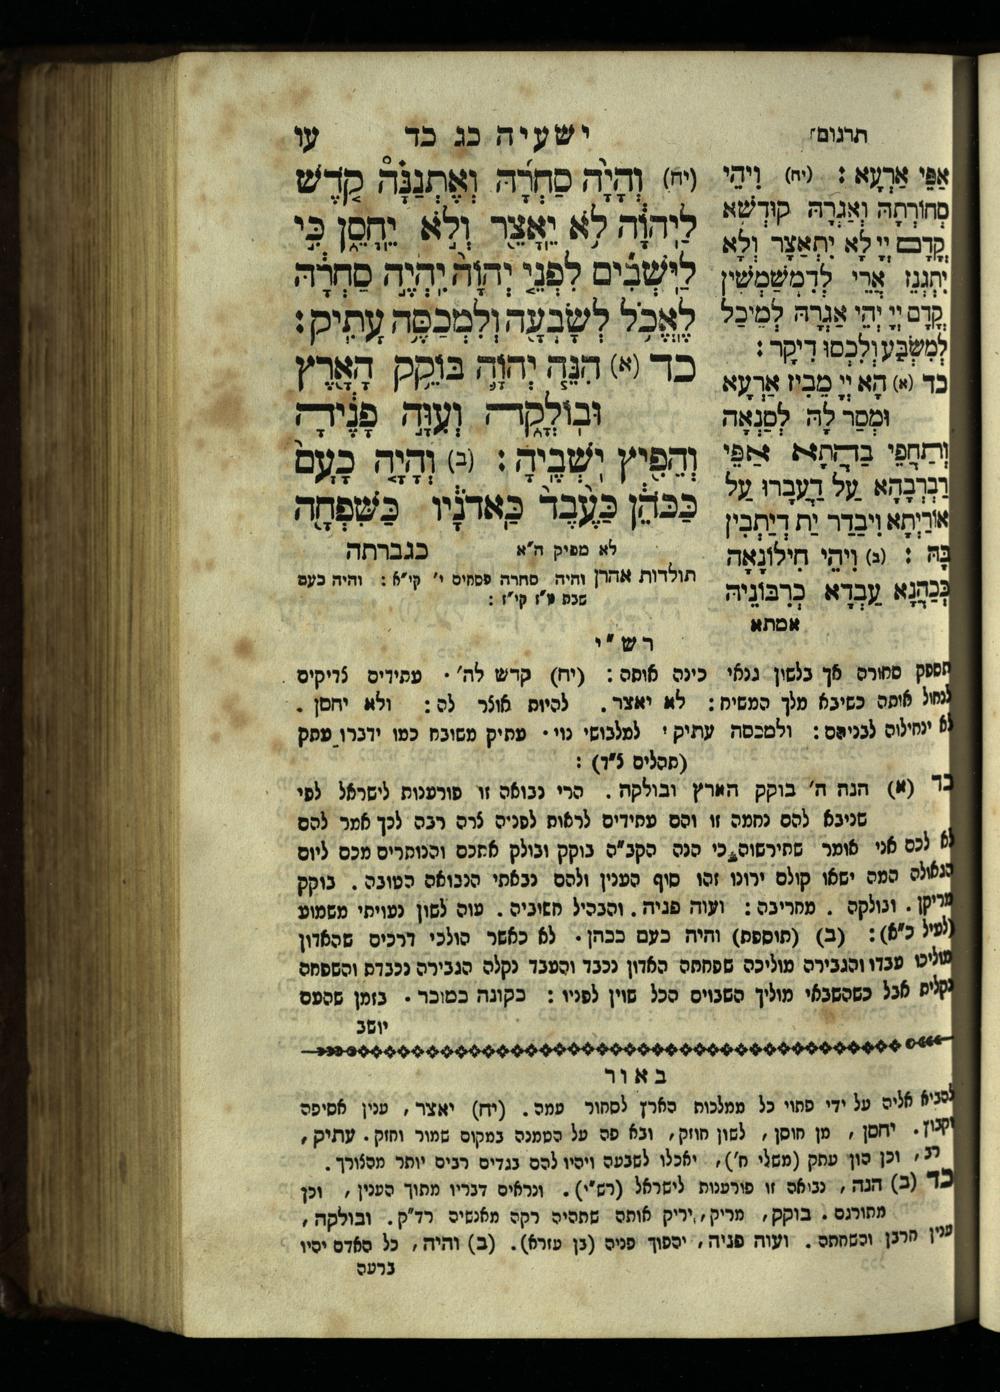 תרגום ישעיה כג כד עו
(יח) וְהָיָה סַחְרָהּ וְאֶתְנַנָּהּ קֹדֶשׁ
לַיהוָֹה לֹא יֵאָצֵר וְלֹא יֵחָסֵן כִּי
לַיֹּשְׁבִים לִפְנֵי יְהוָֹה יִהְיֶה סַחְרָהּ
לֶאֱכֹל לְשָׂבְעָה וְלִמְכַסֶּה עָתִיק :
כד (א) הִנֵּה יְהוָֹה בּוֹקֵק הָאָרֶץ
וּבוֹלְקָהּ וְעִוָּה פָנֶיהָ
וְהֵפִיץ יֹשְׁבֶיהָ : (ב) וְהָיָה כָעָם
כַּכֹּהֵן כַּעֶבֶד כַּאדֹנָיו כַּשִּׁפְחָה
לא מפיק ה"א כגברתה
תולדות אהרן והיה סחרה פסחים י' קי"א : והיה כעם
שבת ע"ז קי"ז :
אַפֵּי אַרְעָא : (יח) וִיהֵי
סְחוֹרְתָהּ וְאַגְרָהּ קוּדְשָׁא
קֳדָם יְיָ לָא יִתְאַצָּר וְלָא
יִתְגְנֵז אֲרֵי לְדִמְשַׁמְּשִׁין
קֳדָם יְיָ יְהֵי אַגְרָהּ לְמֵיכַל
לְמִשְׂבַּע וְלִכְסוּ דִיקָר :
כד (א) הָא יְיָ מֵבִיז אַרְעָא
וּמְסַר לָהּ לְסַנְאָה
וְתַחֲפֵי בַהֲתָא אַפֵּי
רַבְרְבָהָא עַל דַעֲבָרוּ עַל
אוֹרַיְתָא וִיבַדַר יַת דְיַתְבִין
בָּהּ : (ב) וִיהֵי חִילוֹנָאָה
כְּכַהֲנָא עַבְדָא כְּרִבּוֹנֵיהּ
אמתא
רש"י
תספק סחורה אך בלשון גנאי כינה אותה : (יח) קדש לה' . עתידים צדיקים
לנחול אותה כשיבא מלך המשיח : לא יאצר . להיות אוצר לה : ולא יחסן .
לא ינחילוה לבניהם : ולמכסה עתיק . למלבושי נוי . עתיק משובח כמו ידברו עתק
(תהלים צ"ד) :
כד (א) הנה ה' בוקק הארץ ובולקה . הרי נבואה זו פורענות לישראל לפי
שניבא להם נחמה זו והם עתידים לראות לפניה צרה רבה לכך אמר להם
לא לכם אני אומר שתירשוה כי הנה הקב"ה בוקק ובולק אתכם והנותרים מכם ליום
הגאולה המה ישאו קולם ירונו זהו סוף הענין ולהם נבאתי הנבואה הטובה . בוקק
מריקן . ובולקה . מחריבה : ועוה פניה . והבהיל חשוביה . עוה לשון נעויתי משמוע
(לעיל כ"א) : (ב) (תוספת) והיה כעם ככהן . לא כאשר הולכי דרכים שהאדון
מוליכו עבדו והגבירה מוליכה שפחתה האדון נכבד והעבד נקלה הגבירה נכבדת והשפחה
נקלית אבל כשהשבאי מוליך השבוים הכל שוין לפניו : כקונה כמוכר . בזמן שהעם
יושב
באור
להביא אליה על ידי פתוי כל ממלכות הארץ לסחור עמה . (יח) יאצר , ענין אסיפה
וקבוץ . יחסן , מן חוסן , לשון חוזק , ובא פה על הטמנה במקום שמור וחזק . עתיק ,
רב , וכן הון עתק (משלי ח') , יאכלו לשבעה ויהיו להם בגדים רבים יותר מהצורך .
כד (ב) הנה , נבואה זו פורענות לישראל (רש"י) . ונראים דבריו מתוך הענין , וכן
מתורגם . בוקק , מריק , יריק אותה שתהיה רקה מאנשיה רד"ק . ובולקה ,
ענין חרבן והשחתה . ועוה פניה , יהפוך פניה (בן עזרא) . (ב) והיה , כל האדם יהיו
ברעה